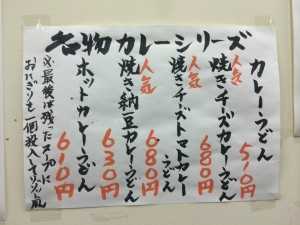 名物カレーシリーズ
カレーうどん
510円
人気
焼きチーズカレーうどん
680円
人気
焼きチーズトマトカレー
うどん
680円
人気
焼き納豆カレーうどん
630円
ホットカレーうどん
610円
※最後は残ったスープに
おにぎりを一個投入